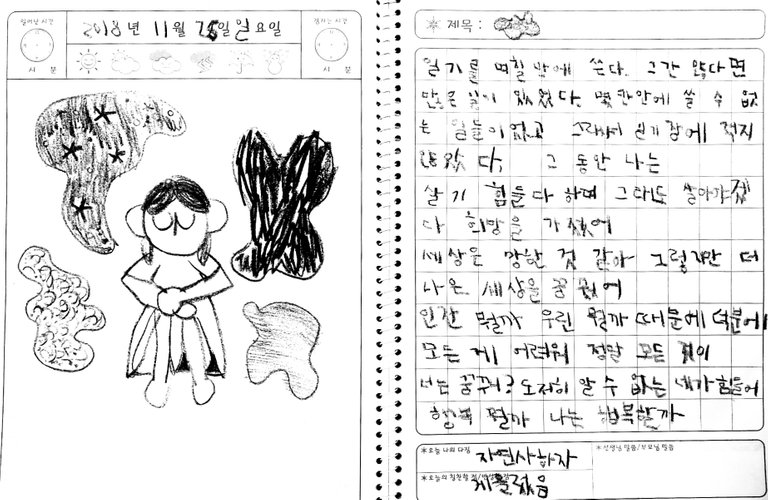 일어난 시간
시 분
2018년 11월 25일 일요일
잠자는 시간
시 분
* 제목 :
일기를 며칠 만에 쓴다. 그간 많다면
많은 일이 있었다. 몇 칸 안에 쓸 수 없
는 일들이었고 그래서 일기장에 적지
않았다. 그 동안 나는
살기 힘들다 하며 그래도 살아가겠
다 희망을 가졌어
세상은 망한 것 같아 그렇지만 더
나은 세상을 꿈꿨어
인간 뭘까 우린 뭘까 때문에 덕분에
모든 게 어려워 정말 모든 것이
너는 꿈꿔? 도저히 알 수 없는 네가 힘들어
행복 뭘까 나는 행복할까
*오늘 나의 다짐 자연사하자
*선생님 말씀/부모님 말씀
*오늘의 착한일 게을렀음